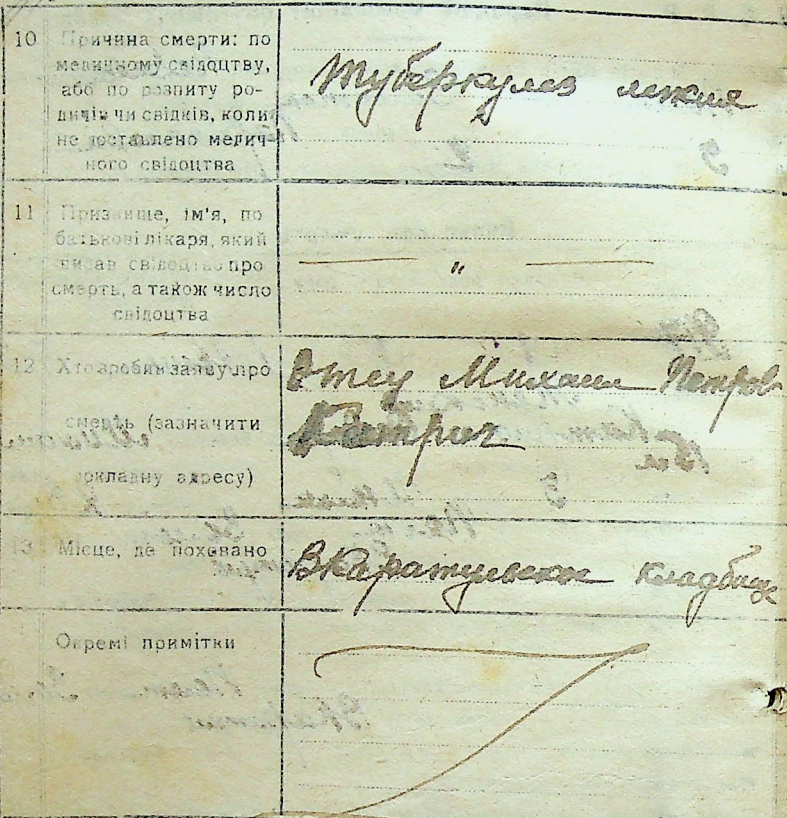 10 Причина смерти: по
медичному свідоцтву,
або по розпиту ро-
дичів чи свідків, коли
не доставлено медич-
ного свідоцтва
Туберкулез легких
11 Призвище, ім'я, по
батькові лікаря, який
видав свідоцтво про
смерть, а також число
свідоцтва
— " —
12 Хто зробив заяву про
смерть (зазначити
докладну адресу)
Отец Михаил Петров
13 Місце, де поховано
В Каратульском кладбище
Окремі примітки